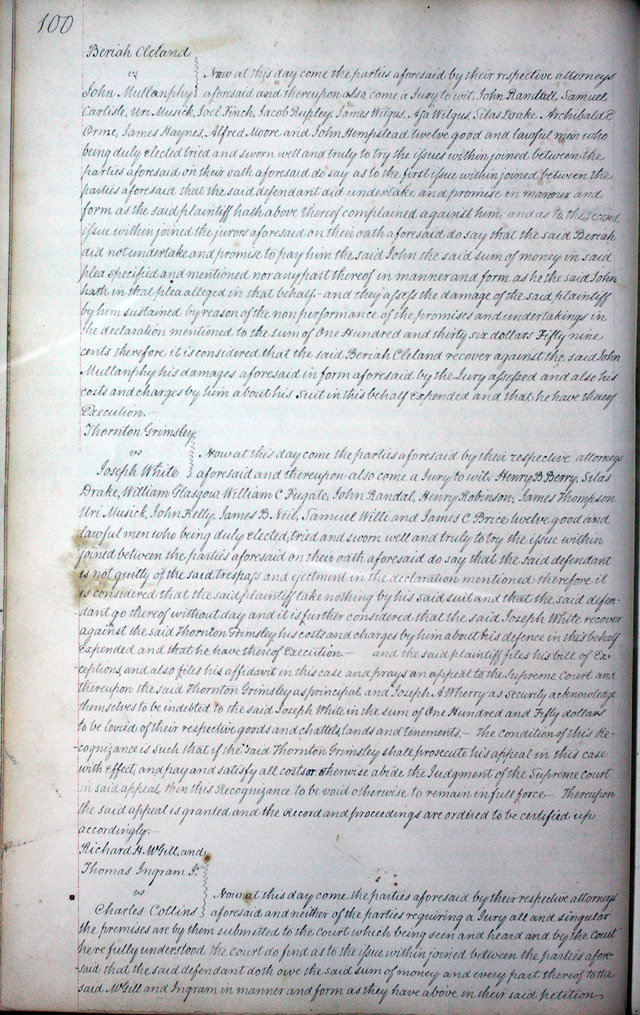 100
Beriah Cleland
vs
Now at this day come the parties aforesaid by their respective attorneys
John Mullanphy aforesaid and thereupon also come a Jury to wit, John Randall, Samuel
Carlisle, Uri Musick, Joel Finch, Jacob Rupley, James Wilgus, Asa Wilgus, Silas Drake, Archibald E
Orme, James Haynes, Alfred Moore and John Hempstead twelve good and lawful men who
being duly elected tried and sworn well and truly to try the issues within joined between the
parties aforesaid on their oath aforesaid do say as to the first issue within joined between the
parties aforesaid that the said defendant did undertake and promise on manner and
form as the said plaintiff hath above thereof complained against him, and as to the second
issue within joined the jurors aforesaid on their oath aforesaid do say that the said Beriah
did not undertake and promise to pay him the said John the said sum of money in said
plea specified and mentioned nor any part thereof in manner and form as he the said John
hath in that plea alleged in that behalf - and they assess the damage of the said plaintiff
by him sustained by reason of the non performance of the promises and undertakings in
the declaration mentioned to the sum of One Hundred and thirty six dollars Fifty nine
cents therefore it is considered that the said Beriah Cleland recover against the said John
Mullanphy his damages aforesaid in form aforesaid by the Jury assessed and also his
costs and charges by him about his Suit in this behalf expended and that he have thereof
Execution.
Thornton Grimsley
vs
Now at this day come the parties aforesaid by their respective attorneys
Joseph White aforesaid and thereupon also come a Jury to wit; Henry B Berry, Silas
Drake, William Glasgow, William C Fugate, John Randal, Henry Robinson, James Thompson
Uri Musick, John Kelly, James B. Neil, Samuel Willi and James C Brice, twelve good and
lawful men who being duly elected, tried and sworn well and truly to try the issue within
joined between the parties aforesaid on their oath aforesaid do say that the said defendant
is not guilty of the said trespass and ejectment in the declaration mentioned therefore it
is considered that the said plaintiff take nothing by his said suit and that the said defen-
dant go thereof without day and it is further considered that the said Joseph White recover
against the said Thornton Grimsley his costs and charges by him about his defence in this behalf
expended and that he have thereof Execution. — and the said plaintiff files his bill of Ex-
ceptions, and also files his affidavit in this case and prays an appeal to the Supreme Court and
thereupon the said Thornton Grimsley as principal and Joseph A Wherry as security acknowledge
themselves to be indebted to the said Joseph White in the sum of One Hundred and Fifty dollars
to be levied of their respective goods and chattels, lands and tenements. - The condition of this Re-
cognizance is such that if the said Thornton Grimsley shall prosecute his appeal in this case
with effect, and pay and satisfy all costs or otherwise abide the Judgment of the Supreme court
in said appeal then this Recognizance to be void otherwise to remain in full force — Thereupon
the said appeal is granted and the Record and proceedings are ordered to be certified up
accordingly. -
Richard H. McGill, and
Thomas Ingram Jr.
vs
Now at this day come the parties aforesaid by their respective attorneys
Charles Collins aforesaid and neither of the parties requiring a Jury all and singular
the premises are by them submitted to the Court which being seen and heard and by the Court
here fully understood the court do find as to the issue within joined between the parties afore-
said that the said defendant doth owe the said sum of money and every part thereof to the
said McGill and Ingram in manner and form as they have above in their said petition